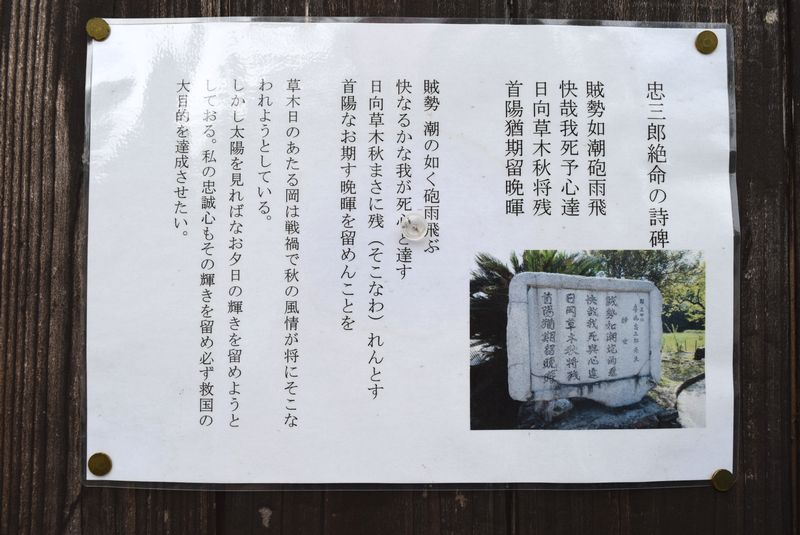 忠三郎絶命の詩碑
賊勢如潮砲雨飛
快哉我死予心達
日向草木秋将残
首陽猶期留晩暉
賊勢 潮の如く砲雨飛ぶ
快なるかな我が死心と達す
日向草木秋まさに残（そこなわ）れんとす
首陽なお期す晩暉を留めんことを
草木日のあたる岡は戦禍で秋の風情が将にそこな
われようとしている。
しかし太陽を見ればなお夕日の輝きを留めようと
しておる。私の忠誠心もその輝きを留め必ず救国の
大目的を達成させたい。
賊勢如潮砲雨飛
快哉我死與心達
日向草木秋将残
首陽猶期留晩暉